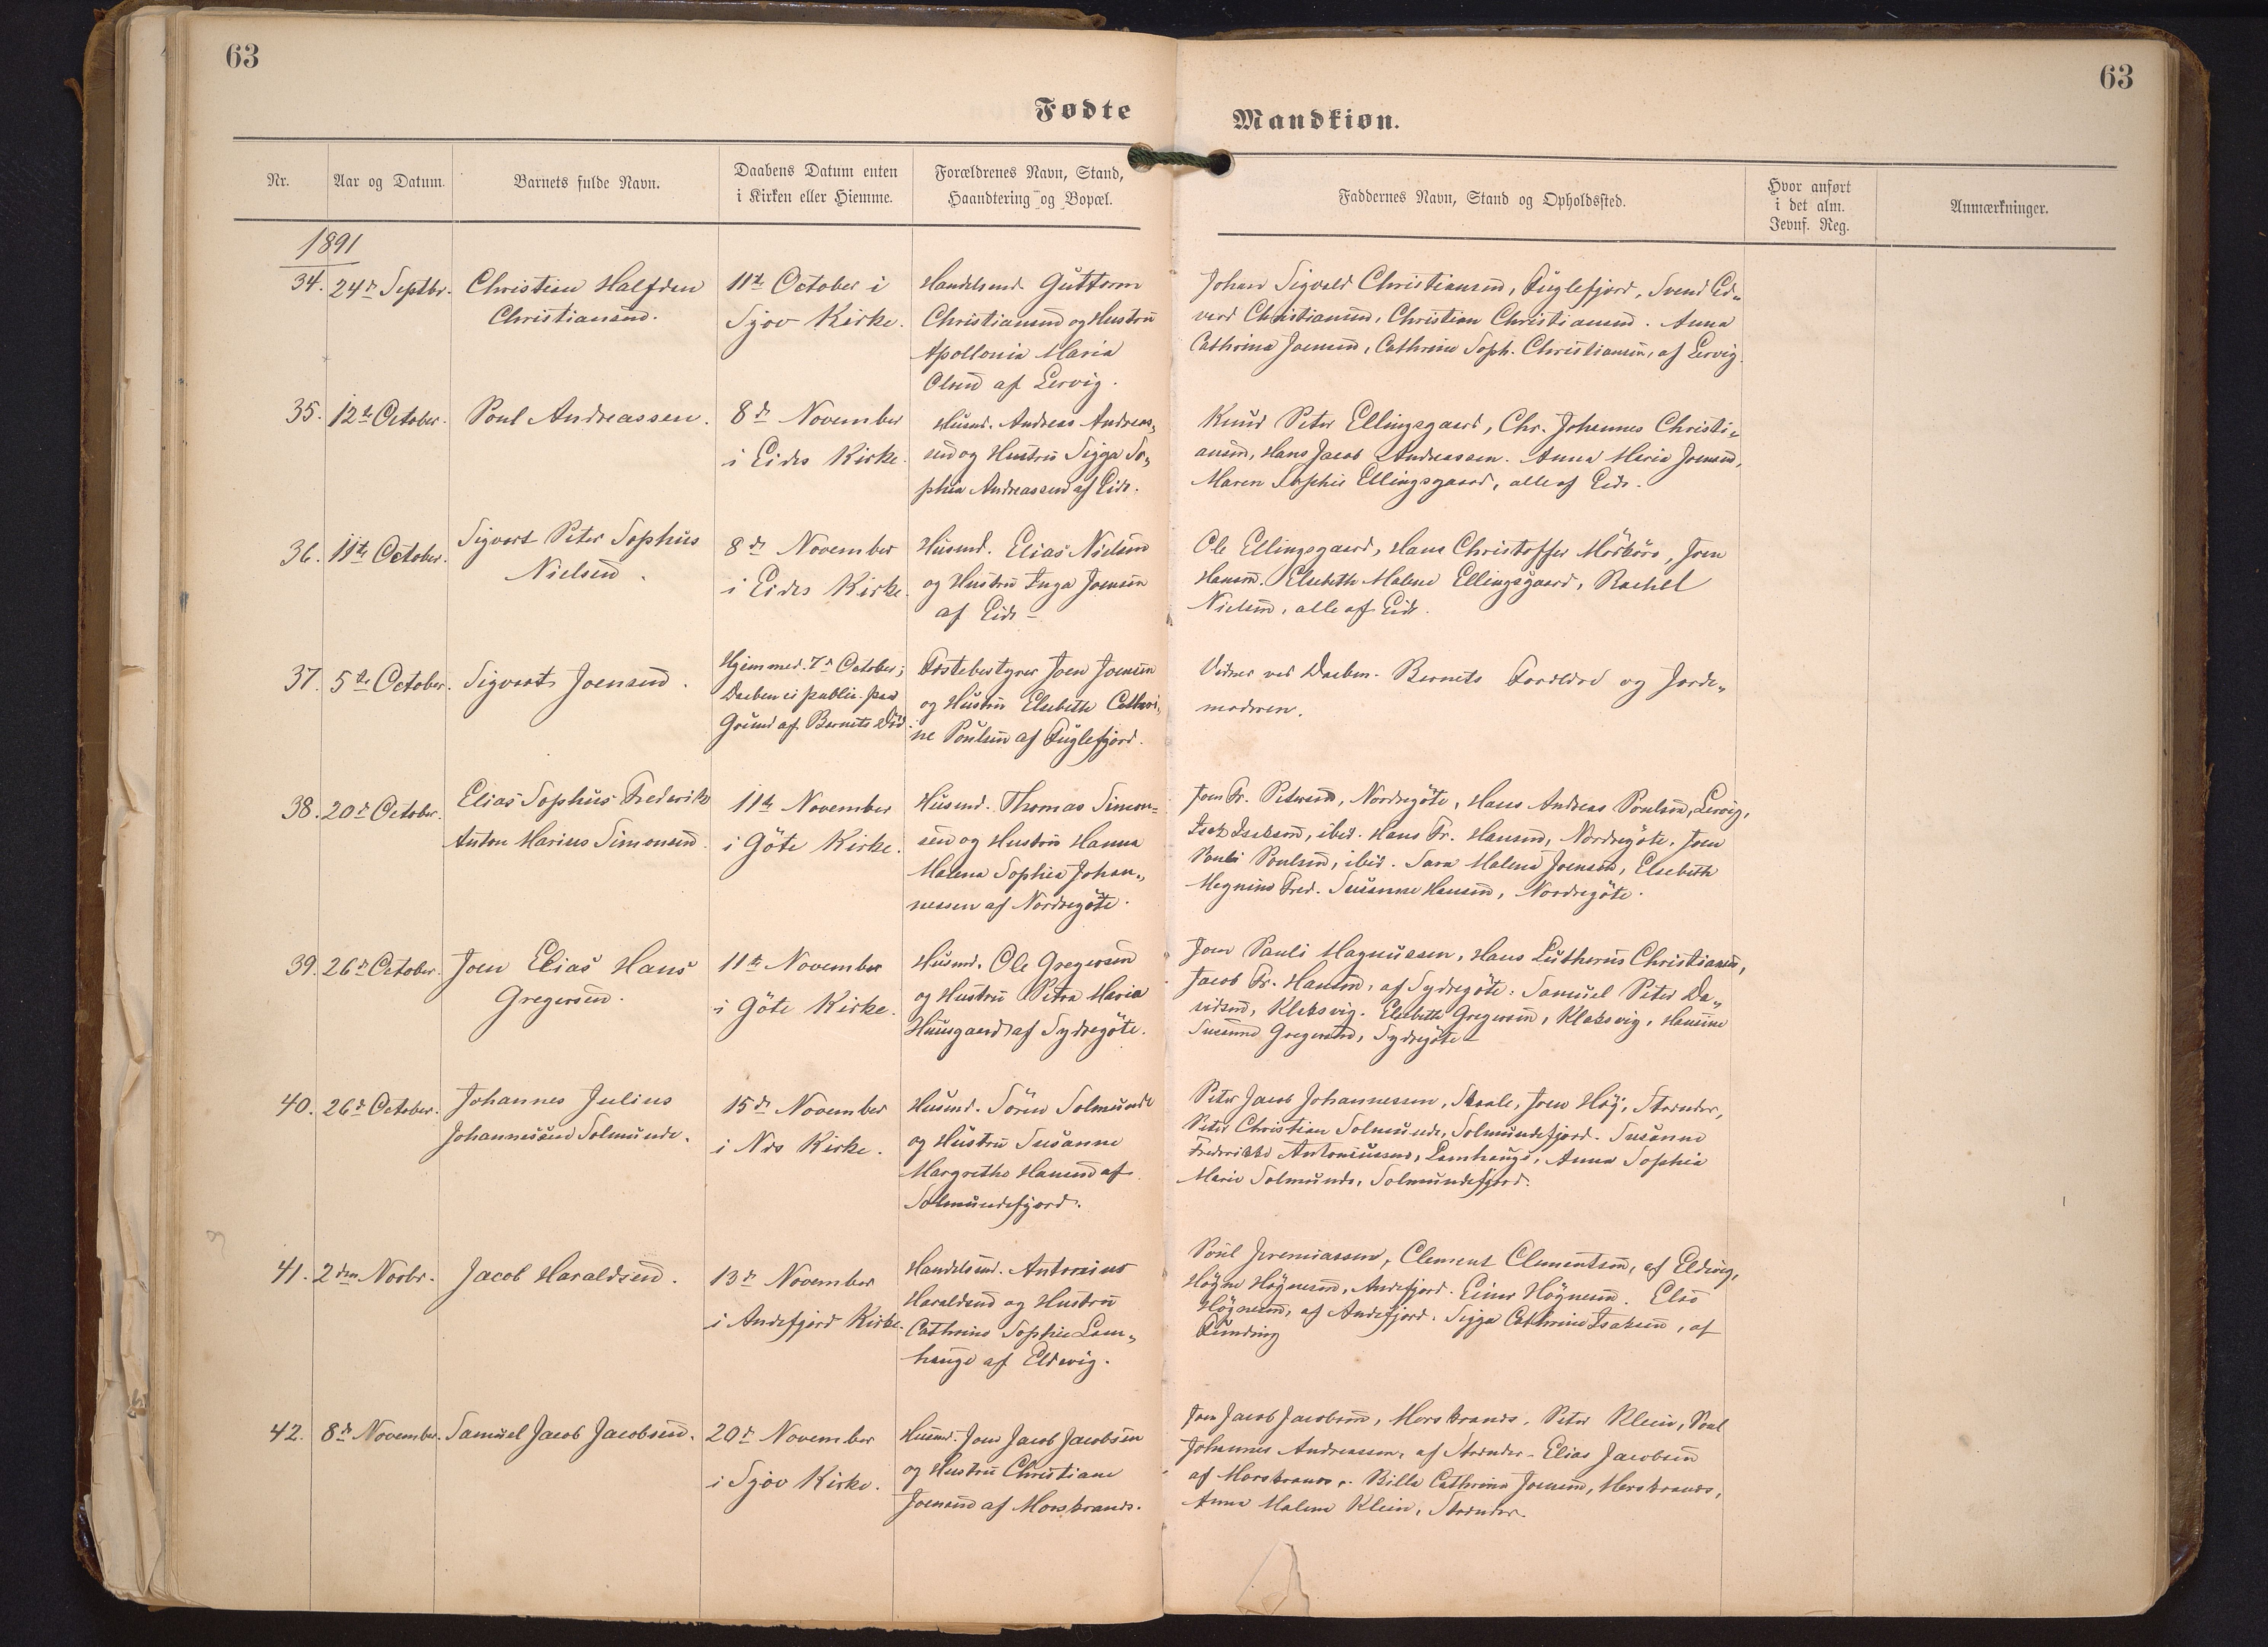 63
63
Fødte
Mandkiøn.
Nr.
Aar og Datum.
Barnets fulde Navn.
Daabens Datum enten
i Kirken eller Hiemme.
Forældrenes Navn, Stand,
Haandtering og Bopæl.
Faddernes Navn, Stand og Opholdssted.
Hvor anført
i det alm.
Jevnf. Reg.
Anmærkninger.
1891
34.
24de Septbr.
Christian Halfdan
Christiansen.
11te October i
Sjov Kirke.
Handelsmd. Guttorm
Christiansen og Hustru
Apollonia Maria
Olsen af Lervig.
Johan Sigvald Christiansen, Fuglefjord, Svend Ed-
vard Christiansen, Christian Christiansen. Anna
Cathrina Joensen, Cathrine Soph. Christiansen, af Lervig.
35.
12te October.
Poul Andreassen.
8de November
i Eides Kirke.
Husmd. Andreas Andreas-
sen og Hustru Sigga So-
phia Andreassen af Eide.
Knud Peter Ellingsgaard, Chr. Johannes Christi-
ansen, Hans Jacob Andreassen. Anna Maria Joensen,
Maren Sophie Ellingsgaard, alle af Eide.
36.
11te October.
Sigvart Peter Sophus
Nielsen.
8de November
i Eides Kirke.
Husmd. Elias Nielsen
og Hustru Inga Joensen
af Eide -
Ole Ellingsgaard, Hans Christoffer Mörköre, Joen
Hansen. Elsebeth Malene Ellingsgaard, Rachel
Nielsen, alle af Eide.
37.
5te October.
Sigvart Joensen.
Hjemmed. 7de October;
Daaben ei public. paa
Grund af Barnets Död.
Fæstebestyrer Joen Joensen
og Hustru Elsebeth Cathri-
ne Poulsen af Fuglefjord.
Vidner ved Daaben. Barnets Forældre og Jorde-
moderen.
38.
20de October.
Elias Sophus Frederik
Anton Marius Simonsen.
11te November
i Göte Kirke.
Husmd. Thomas Simon-
sen og Hustru Hanna
Malena Sophia Johan-
nessen af Nordregöte.
Joen Fr. Petersen, Nordregöte, Hans Andreas Poulsen, Lervig,
Isak Isaksen, ibid. Hans Fr. Hansen, Nordregöte. Joen
Pauli Poulsen, ibid. Sara Malene Joensen, Elsebeth
Fred. Susanne Hansen, Nordregöte.
39.
26de October.
Joen Elias Hans
Gregersen.
11te November
i Göte Kirke.
Husmd. Ole Gregersen
og Hustru Petra Maria
Huusgaard af Sydregöte.
Joen Pauli Magnussen, Hans Lutherus Christiansen,
Jacob Fr. Hansen, af Sydregöte. Samuel Peter Da-
vidsen, Klaksvig. Elsebeth Gregersen, Klaksvig, Hansine
Susanne Gregersen, Sydregöte
40.
26de October.
Johannes Julius
Johannessen Solmunde.
15de November
i Næs Kirke.
Husmd. Sören Solmunde
og Hustru Susanne
Margrethe Hansen af
Solmundefjord.
Peter Jacob Johannessen, Skaale, Joen Höj, Strænder,
Peter Christian Solmunde, Solmundefjord. Susanne
Frederikke Antoniussen, Lamhauge, Anna Sophia
Marie Solmunde, Solmundefjord.
41.
2den Novbr.
Jacob Haraldsen.
13de November
i Andefjord Kirke.
Handelsmd. Antonius
Haraldsen og Hustru
Cathrine Sophie Lam-
hauge af Eldevig.
Poul Jeremiassen, Clement Clementsen, af Eldevig,
Högne Högnesen, Andefjord. Einar Högnesen. Elsa
Högnesen, af Andefjord. Sigga Cathrine Isaksen, af
Funding
42.
8de November.
Samuel Jacob Jacobsen.
20de November
i Sjov Kirke.
Husmd. Joen Jacob Jacobsen
og Hustru Christiane
Joensen af Morskranes.
Joen Jacob Jacobsen, Morskranes. Peter Klein, Poul
Johannes Andreassen, af Strænder. Elias Jacobsen
af Morskranes. Billa Cathrina Joensen, Morskranes,
Anna Malene Klein, Strænder.